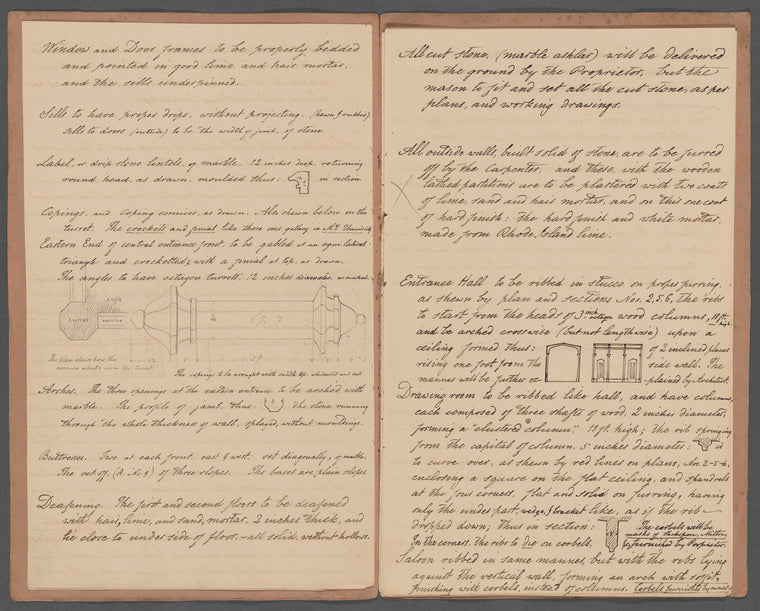 Window and Door frames to be properly bedded
and pointed in good lime and hair mortar,
and the sills underpinned.
Sills to have proper drips, without projecting. (hewn & rubbed)
sills to doors (outside) to be the width of jamb. of stone
Label, or drip stone lintels, of marble, 12 inches deep, returning
round head, as drawn, moulded thus: in section.
Copings, and coping cornices, as drawn. Also shewn below on the
turret. The crockets and finial like those over gallery in N.Y. University
Eastern End of central entrance front, to be gabled at an equilateral
triangle and crocketted; with a finial at top, as drawn.
The angles to have octagon turrets, 12 inches diameter, as marked.
angle
turret
cornice
The plan shews how the
cornice abuts upon the turret.
The copings to be wrought with saddle top, chimnies and all
Arches. The three openings at the eastern entrance to be arched with
marble. The profile of jamb, thus: the stone running
through the whole thickness of wall, splayed, without mouldings.
Buttresses. Two at each front, east & west, set diagonally, of marble.
The set off, of three slopes. The bases are plain slopes.
Deafening. The first and second floors to be deafened
with hair, lime, and sand, mortar, 2 inches thick, and
lie close to under side of floor, - all solid, without hollows.
All cut stone, (marble ashlar) will be delivered
on the ground by the Proprietor, but the
mason to fit and set all the cut stone, as per
plans, and working drawings.
All outside walls, built solid of stone, are to be furred
off by the Carpenter, and these, with the wooden
lathed partitions are to be plastered with two coats
of lime, sand and hair mortar, and on this one coat
of hard finish: the hard finish and white mortar
made from Rhode Island lime.
Entrance Hall to be ribbed in stucco on proper furring,
as shewn by plan and sections Nos. 2, 5, 6, the ribs
to start from the heads of 3 inch octagon wood columns, 11 ft. high.
and be arched crosswise (but not lengthwise) upon a
ceiling formed thus: of 2 inclined planes
rising one foot from the side wall. The
manner will be further ex- plained by Architect.
Drawing room to be ribbed like hall, and have columns,
each composed of three shafts of wood, 2 inches diameter,
forming a "clustered column." 11 ft. high; the rib springing
from the capital of column, 5 inches diameter: is
to curve over, as shewn by red lines on plans, Nos. 2-5-6,
enclosing a square on the flat ceiling, and spandrels
at the four corners, flat and solid on furring, having
only the under part, wedge & bracket like, as if the rib
dropped down; thus in section: The corbels will be
masks of Shakspear, Milton,
&c furnished by Proprietor.
In the corners, the ribs to die on corbels,
Saloon ribbed in same manner, but with the ribs lying
against the vertical wall, forming an arch with soffit,
finishing with corbels, instead of columns. Corbels furnished by owner